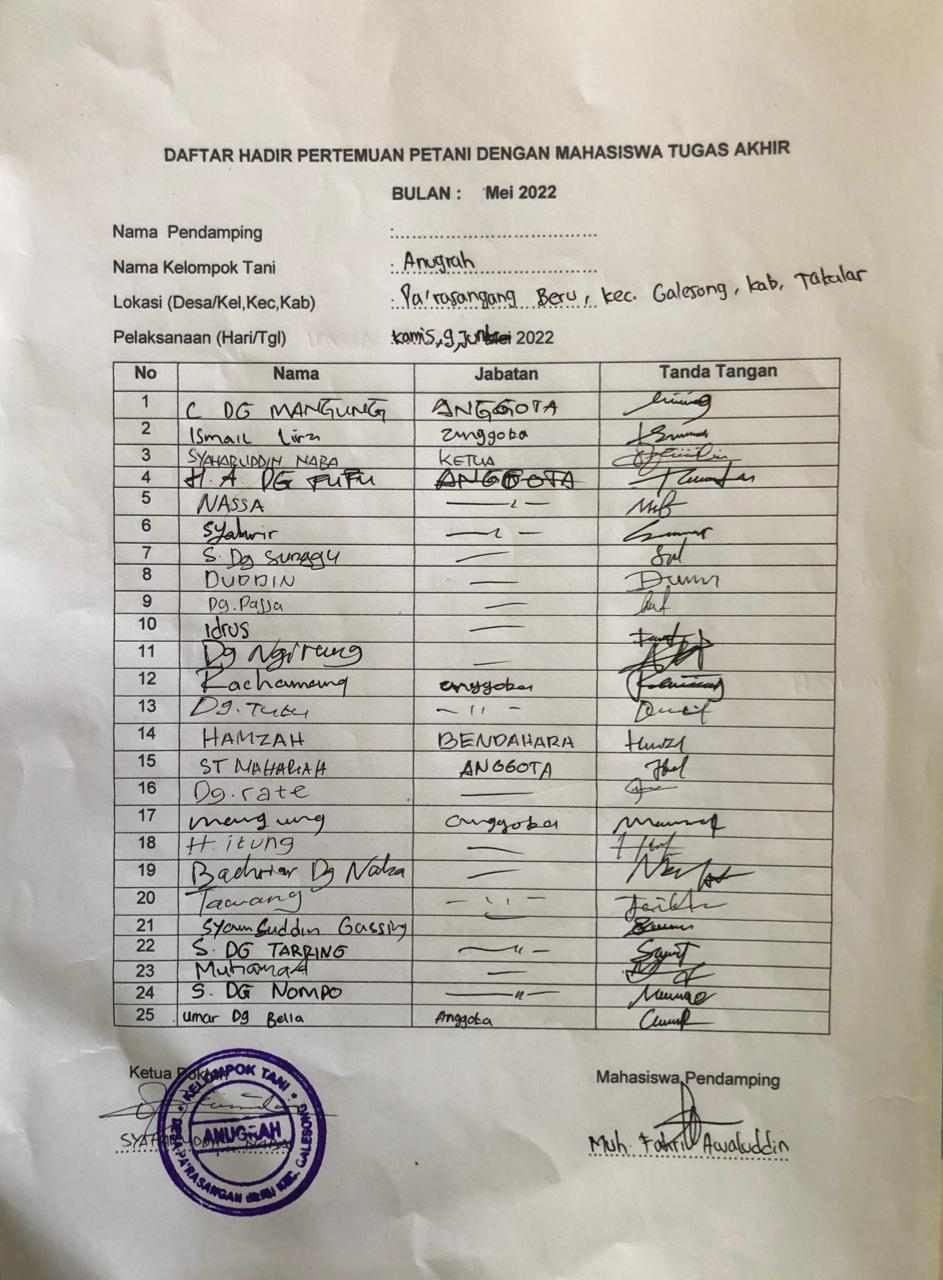 DAFTAR HADIR PERTEMUAN PETANI DENGAN MAHASISWA TUGAS AKHIR
BULAN : Mei 2022
Nama Pendamping :.....................................
Nama Kelompok Tani : Anugrah
Lokasi (Desa/Kel,Kec,Kab) : Pa'rasangang Beru, kec. Galesong, kab. Takalar
Pelaksanaan (Hari/Tgl) kamis, 9, Juni 2022
No Nama Jabatan Tanda Tangan
1 C DG MANGUNG ANGGOTA
2 Ismail Lira anggota
3 SYAHARUDDIN NABA KETUA
4 H. A. DG FUFU ANGGOTA
5 NASSA
6 Syahrir
7 S. Dg Sunggu
8 DUDDIN
9 Dg. Passa
10 Idrus
11 Dg Ngirang
12 Rachamang anggota
13 Dg. Tutu - 11 -
14 HAMZAH BENDAHARA
15 ST MAHARIAH ANGGOTA
16 Dg. rate
17 mangung anggota
18 H. itung
19 Bachriar Dg Naba
20 Tawang
21 Syamsuddin Gassing
22 S. DG TARRING — " —
23 Muhamad
24 S. DG NOMPO — " —
25 Umar Dg Bella Anggota
Ketua Poktan
Mahasiswa Pendamping
KELOMPOK TANI
ANUGRAH
DESA PA'RASANGAN BERU KEC. GALESONG
SYAHARUDDIN NABA
Muh. Fahril Awaluddin